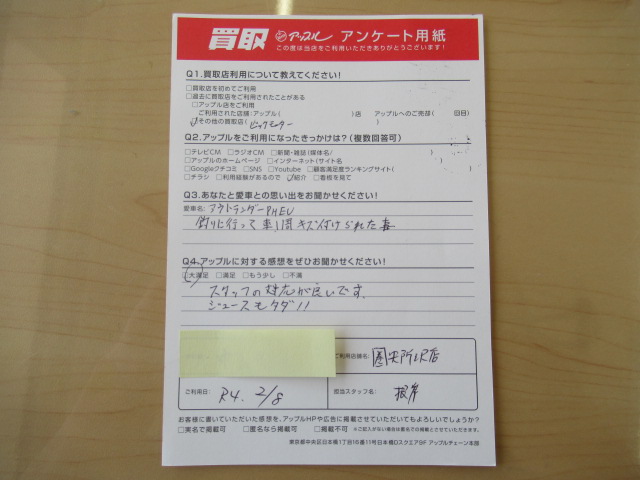 買取 アップル アンケート用紙
この度は当店をご利用いただきありがとうございます!
Q1.買取店利用について教えてください!
□買取店を初めてご利用
□過去に買取店をご利用されたことがある
□アップル店をご利用
ご利用された店舗:アップル( )店 アップルへのご売却( 回目)
☑その他の買取店( ビックモーター )
Q2.アップルをご利用になったきっかけは?(複数回答可)
□テレビCM □ラジオCM □新聞・雑誌(媒体名/ )
□アップルのホームページ □インターネット(サイト名 )
□Googleクチコミ □SNS □Youtube □顧客満足度ランキングサイト( )
□チラシ □利用経験があるので ☑紹介 □看板を見て
Q3.あなたと愛車との思い出をお聞かせください!
愛車名: アウトランダーPHEV
釣りに行って車1周キズ付けられた事
Q4.アップルに対する感想をぜひお聞かせください!
□大満足 □満足 □もう少し □不満
スタッフの対応が良いです。
ジュースもタダ!!
ご利用店舗名: 圏央所沢店
ご利用日: R4. 2/8
担当スタッフ名: 根岸
お客様に書いていただいた感想を、アップルHPや広告に掲載させていただいてもよろしいでしょうか?
□実名で掲載可 □匿名なら掲載可 □掲載不可 ※ご記入がない場合は匿名での掲載とさせていただきます。
東京都中央区日本橋1丁目16番11号日本橋Dスクエア9F アップルチェーン本部